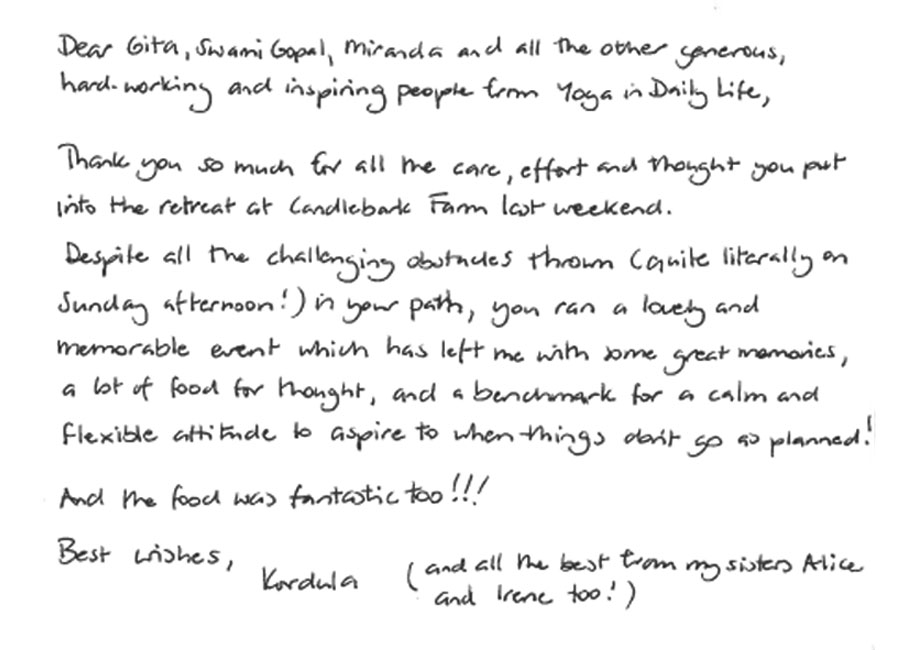 Dear Gita, Swami Gopal, Miranda and all the other generous,
hard-working and inspiring people from Yoga in Daily Life,
Thank you so much for all the care, effort and thought you put
into the retreat at Candlebark Farm last weekend.
Despite all the challenging obstacles thrown (quite literally on
Sunday afternoon!) in your path, you ran a lovely and
memorable event which has left me with some great memories,
a lot of food for thought, and a benchmark for a calm and
flexible attitude to aspire to when things don't go as planned!
And the food was fantastic too!!!
Best wishes,
Kordula (and all the best from my sisters Alice
and Irene too!)